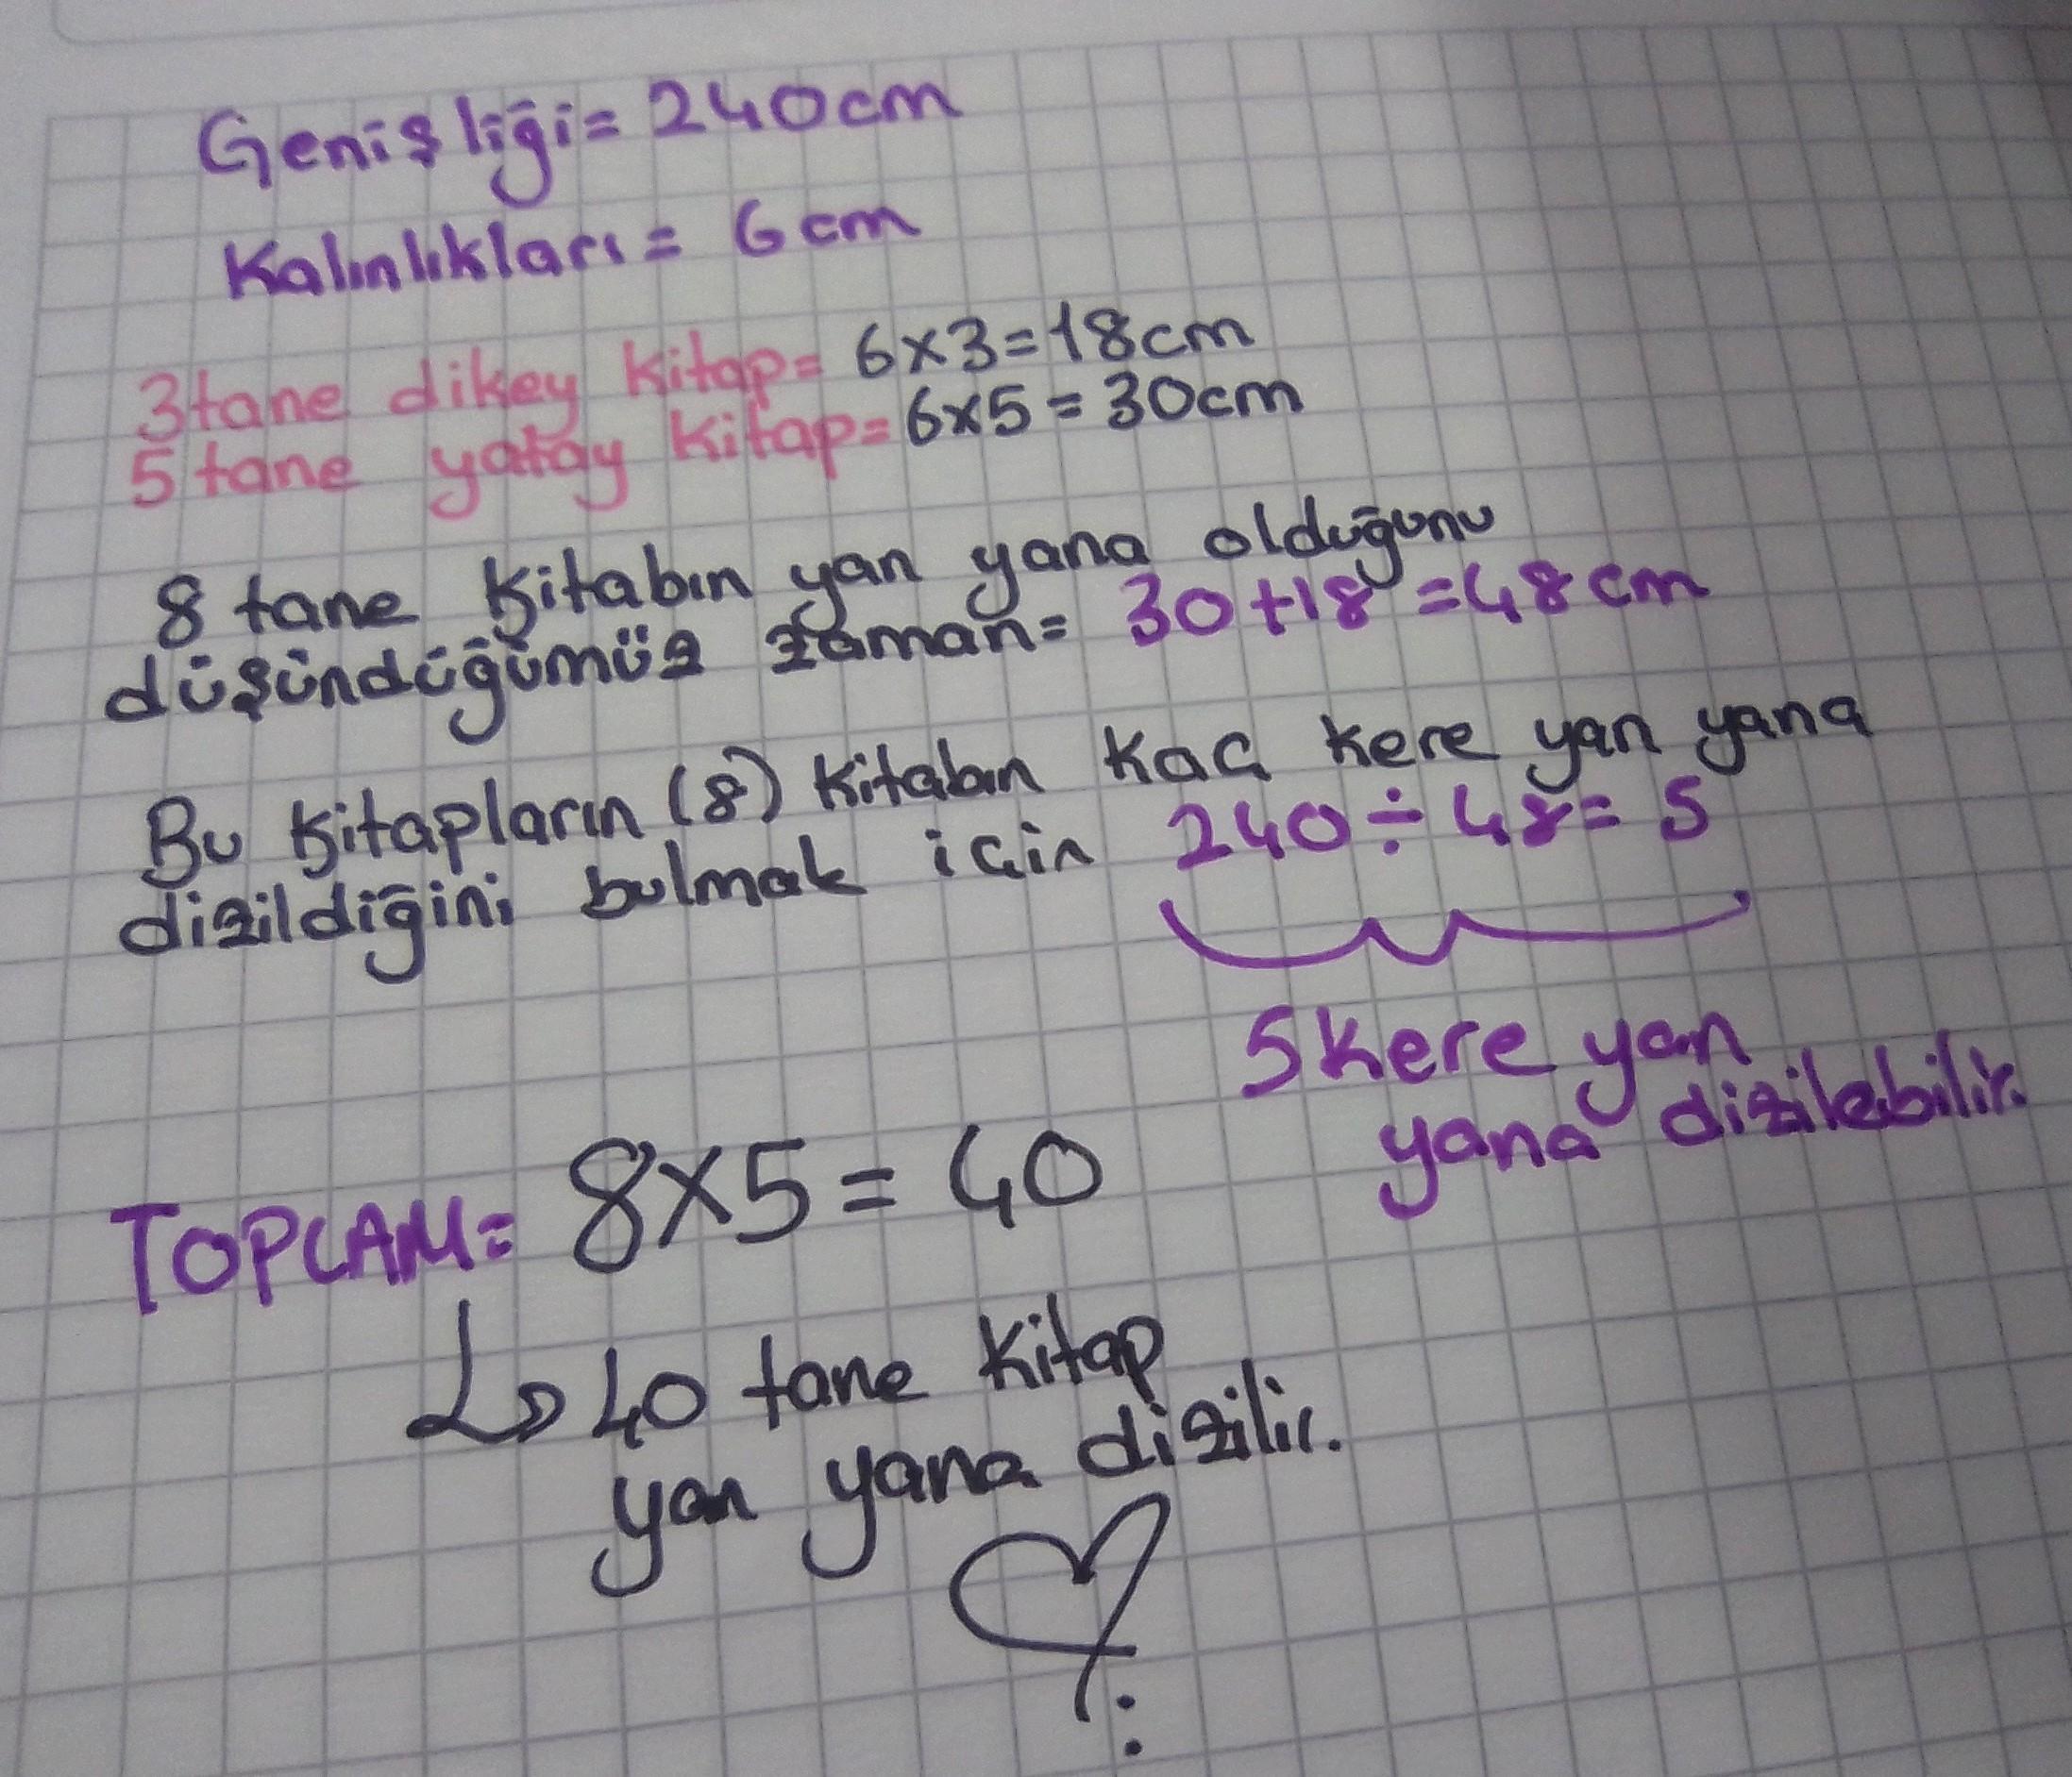 Genişliği= 240cm
Kalınlıkları= 6cm
3tane dikey kitap= 6x3=18cm
5 tane yatay kitap= 6x5=30cm
8 tane kitabın yan yana olduğunu
düşündüğümüz zaman= 30+18=48cm
Bu kitapların (8) kitabın kaç kere yan yana
dizildiğini bulmak için 240÷48=5
5kere yan
yana dizilebilir.
TOPLAM= 8x5=40
↳ 40 tane kitap
yan yana dizilir.